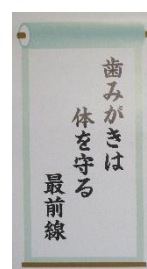 歯みがきは
体を守る
最前線